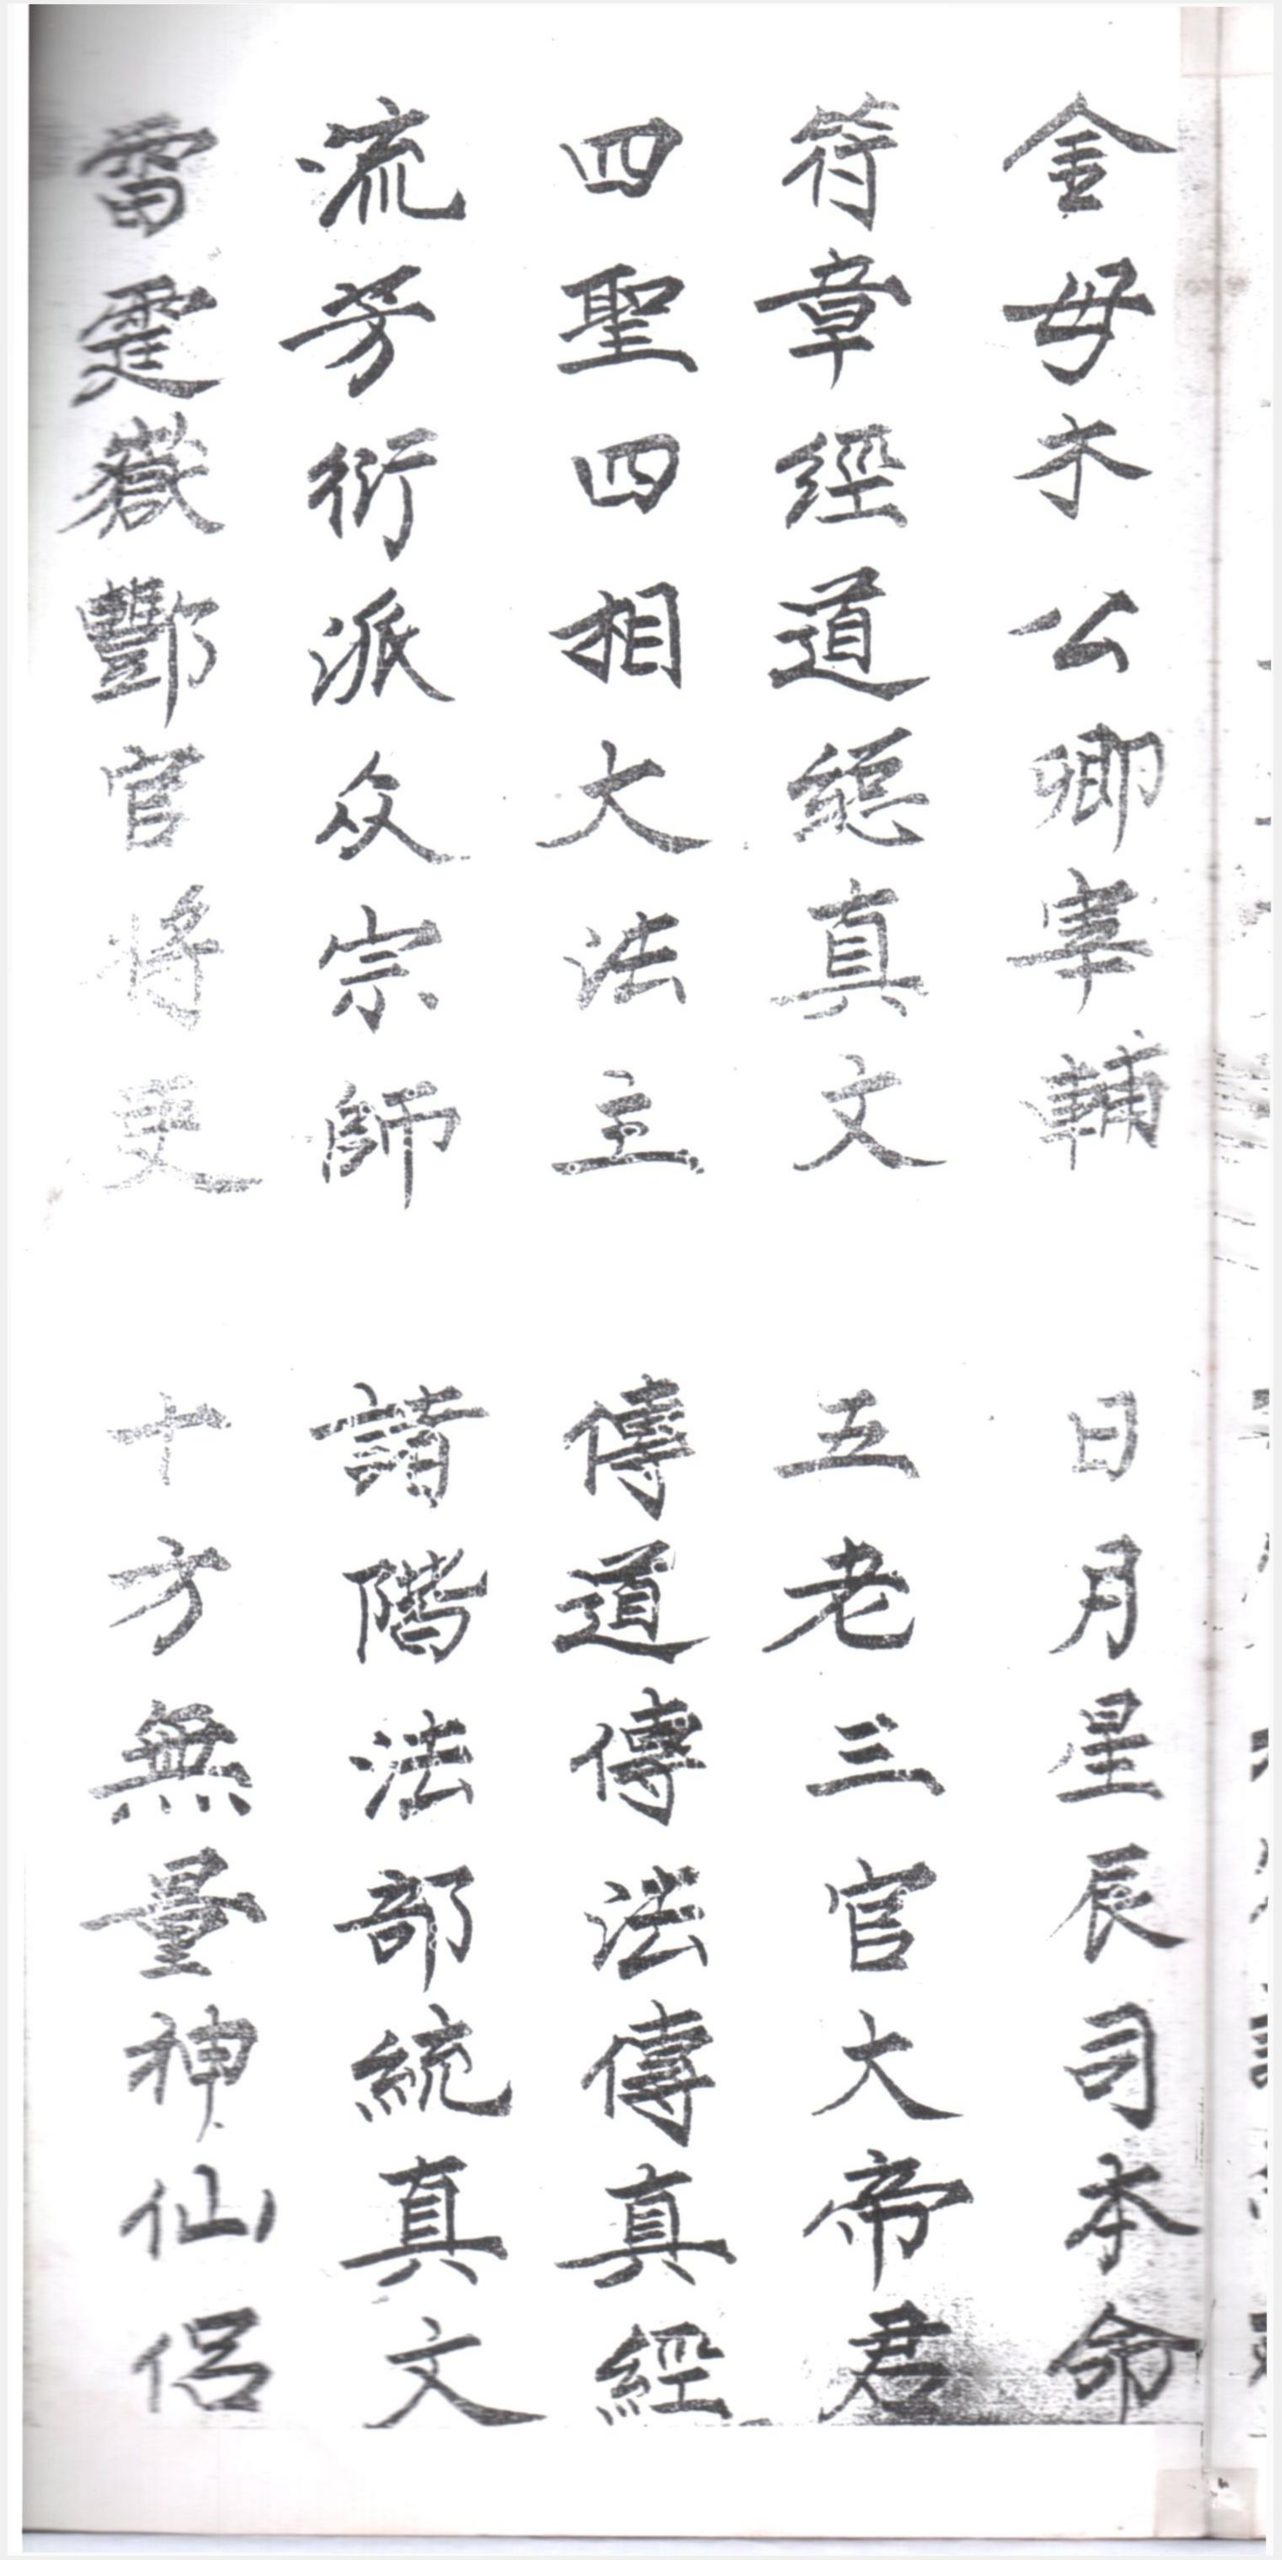 金母木公卿宰輔　日月星辰司本命
符章經道總真文　五老三官大帝君
四聖四相大法主　傳道傳法傳真經
流芳衍派众宗師　諸階法部統真文
雷霆嶽酆官將吏　十方無量神仙侶